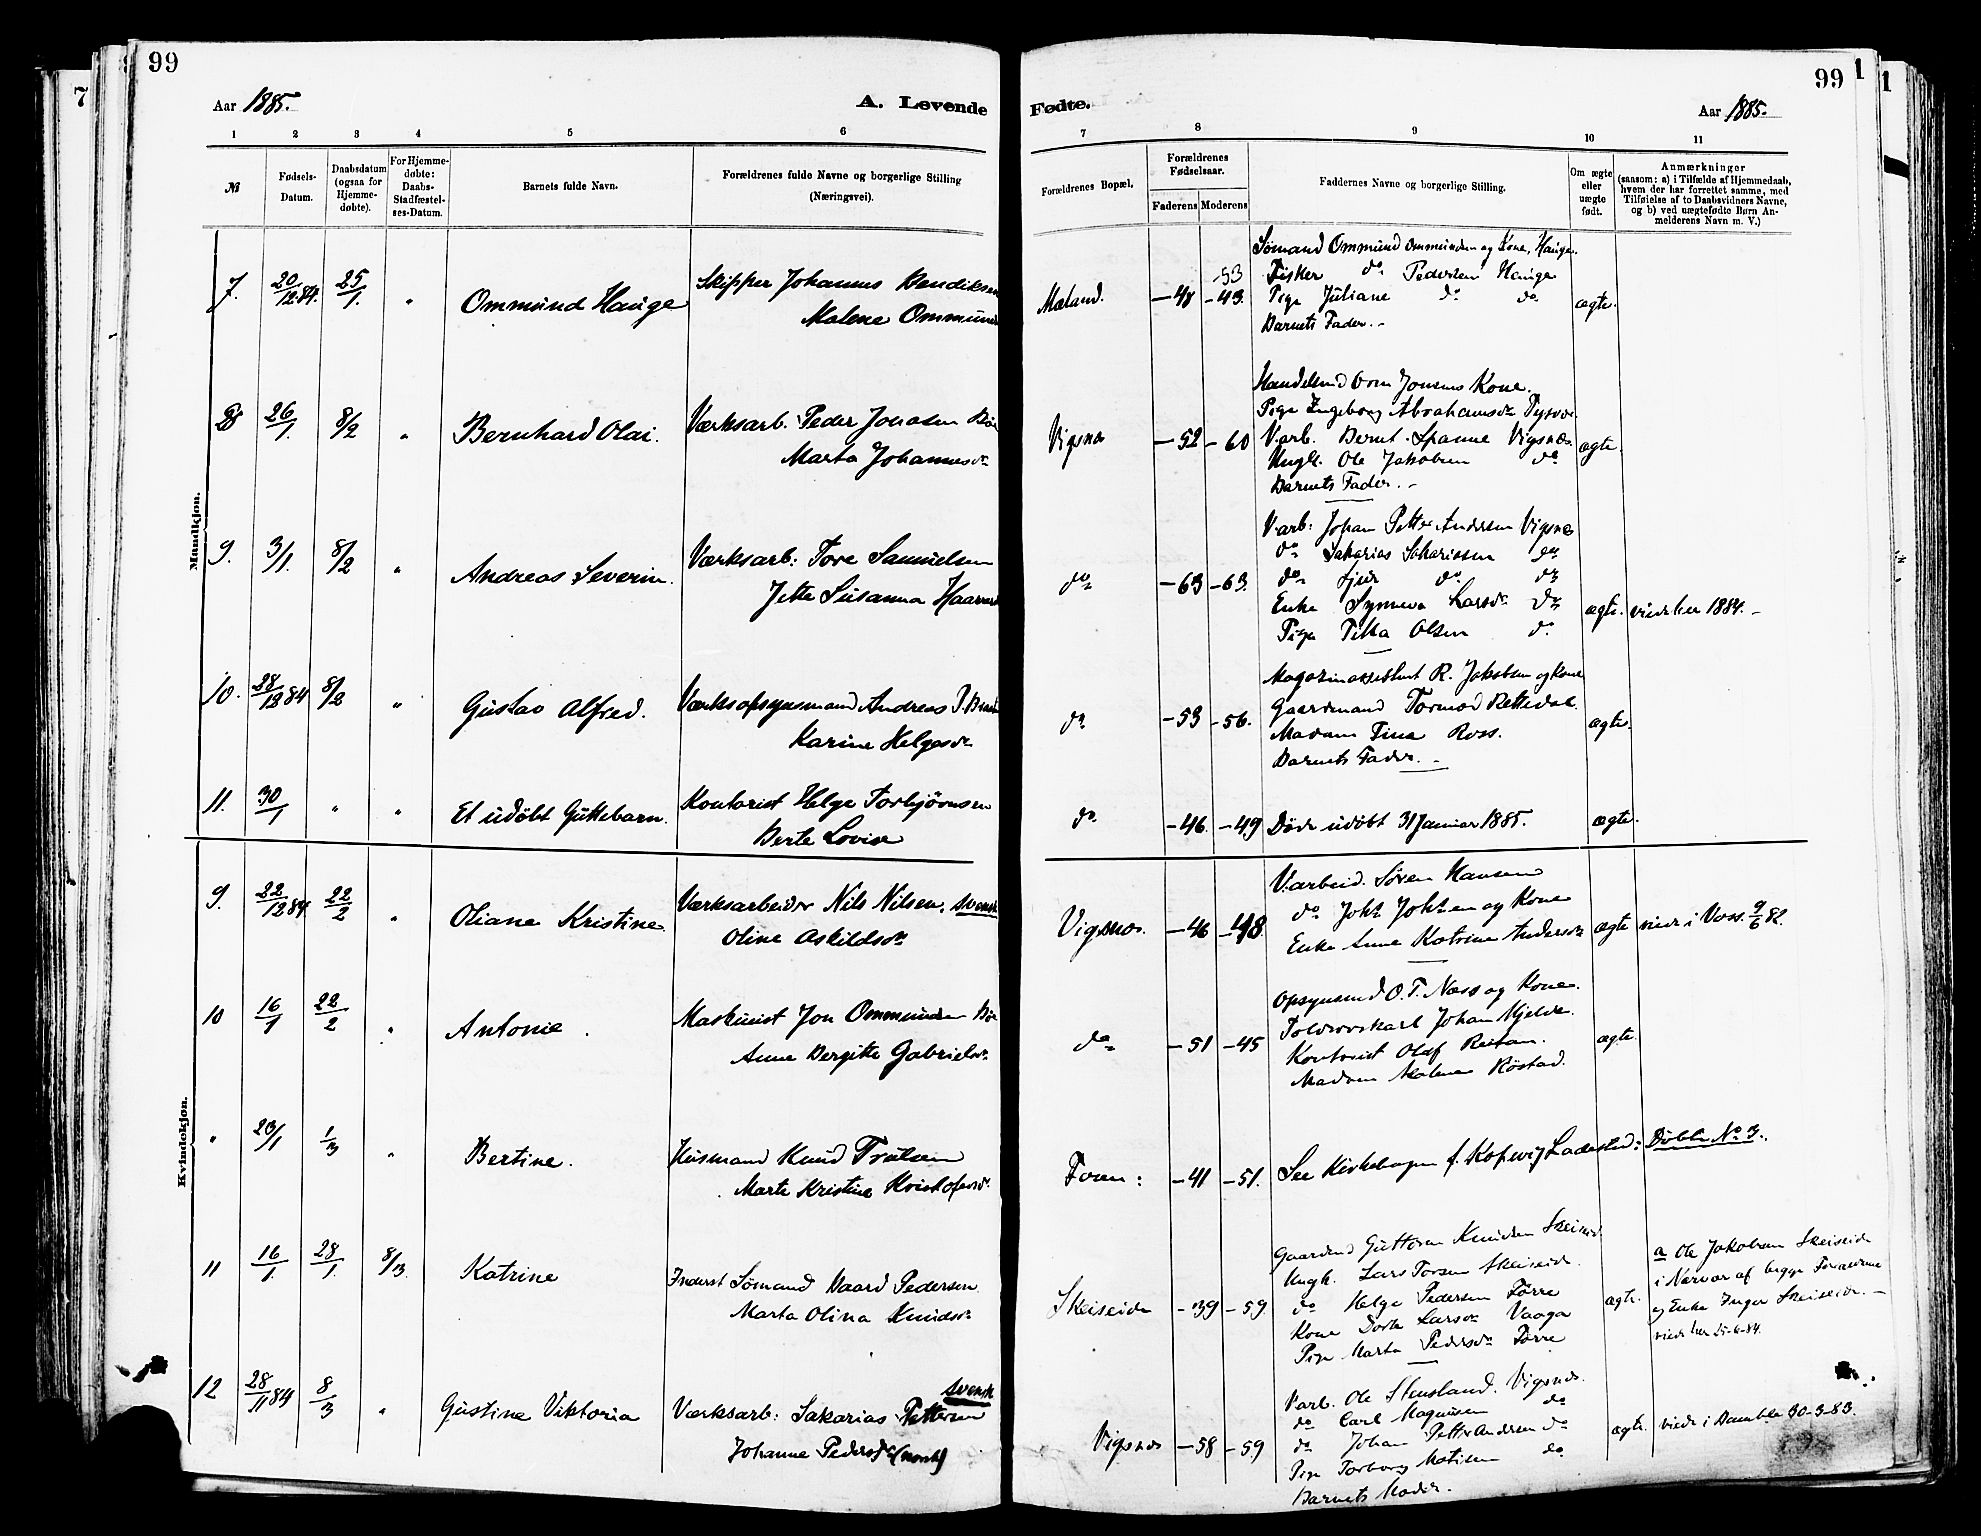 99
Aar 1885.
A. Levende
1 2 3 4 5 6
№
Fødsels-Datum.
Daabsdatum (ogsaa for Hjemme-døbte).
For Hjemme-døbte: Daabs-Stadfæstel-ses-Datum.
Barnets fulde Navn.
Forældrenes fulde Navne og borgerlige Stilling
(Næringsvei).
Mandkjøn.
7. 20/12 84. 25/1. " Ommund Hauge Skipper Johannes Bendiksen
Malene Ommunds
8 26/1. 8/2 " Bernhard Olai. Værksarb. Peder Jonasen
Marta Johannesdr
9. 3/1. 8/2 " Andreas Severin. Værksarb: Tore Samuelsen
Jette Susanna
10. 28/12 84 8/2 " Gustav Alfred. Værksopsynsmand Andreas
Karine Helgesdr
11. 30/1 " " Et udøbt Guttebarn. Kontorist Helge Torbjørnsen
Berte Lovise
Kvindekjøn.
9. 22/12 84 22/2 " Oliane Kristine Værksarbeider Nils Nilsen. svensk
Oline Askildsdr
10 16/1 22/2 " Antonie . Maskinist Jon Ommundsen
Anne Bergitte Gabrielsdr
" 23/1 1/3 " Bertine. Husmand Knud Trulsen
Marte Kristine Kristofersdr
11 16/1. 28/1. 8/13. Katrine Inderst Sømand Baard Pedersen
Marta Olina Knudsdr
12 28/11 84 8/3 " Gustine Viktoria Værksarb: Sakarias Pettersen svensk
Johanne Pedersdr (norsk)
99
Fødte.
Aar 1885.
7 8 9 10 11
Forældrenes Bopæl.
Forældrenes Fødselsaar.
Faderens Moderens
Faddernes Navne og borgerlige Stilling.
Om ægte eller uægte født.
Anmærkninger
(saasom: a) i Tilfælde af Hjemmedaab,
hvem der har forrettet samme, med
Tilføielse af to Daabsvidners Navne,
og b) ved uægtefødte Børn An-
melderens Navn m. V.)
Sømand Ommund Ommundsen og Kone, Hauge.
-53 Fisker do Pedersen Hauge
Mæland. -48 -43. Pige Juliane do do ægte.
Barnets Fader.-
Jonsens Kone.
Pige Ingeborg Abrahamsdr
Vigsnæs -52 -60 Varb. Bernt Spanne Vigsnæs. ægte.
Ungk. Ole Jakobsen do
Barnets Fader.-
Varb: Johan Petter Andersen Vigsnæs
do Sakarias Sakariassen do
do -63 -63. do do do
Enke Synneva Larsdr do ægte. viede her 1884.-
Pige Olsen do.
Magazinassistent R. Jakobsen og Kone
do -53 -56. Gaardmand Tormod Rettedal. ægte.
Madam Tina Ross.
Barnets Fader.-
do -46. -49 Døde udøbt 31 Januar 1885. ægte.
Varbeid. Søren Hansen
Vigsnæs. -46 -48. do og Kone
Enke Anne Katrine Andersdr ægte viede i Voss. 9/6 82.
Opsynsmd O. T. Næss og Kone.
do -51 -45 Toldrorskarl Johan Mjelde. ægte.
Kontorist Olaf Reitan.
Madam Malene Røstad.
: -41 -51. See Kirkebogen f. Kopervig Ladested: Døbte No 3.
Gaardmd Guttorm Knudsen Skeiseid.
Ungk. Lars Torsen Skeiseid.
Skeiseide -39 -59. do Helge Pedersen Førre ægte. a Ole Jakobsen Skeiseide
Kone Dorte Larsdr Vaaga i Nærvær af begge Forældrene
Pige Marta Pedersdr Førre og Enke Inger Skeiseide.-
viede her 25-6-84.
Varb. Ole Stensland. Vigsnæs.
do Carl Magnusen do
Vigsnæs -58 -59. do Johan Petter Andersen do ægte. viede i Bamble 30-3-83.
Pige Torborg Matisen do
Barnets Moder.